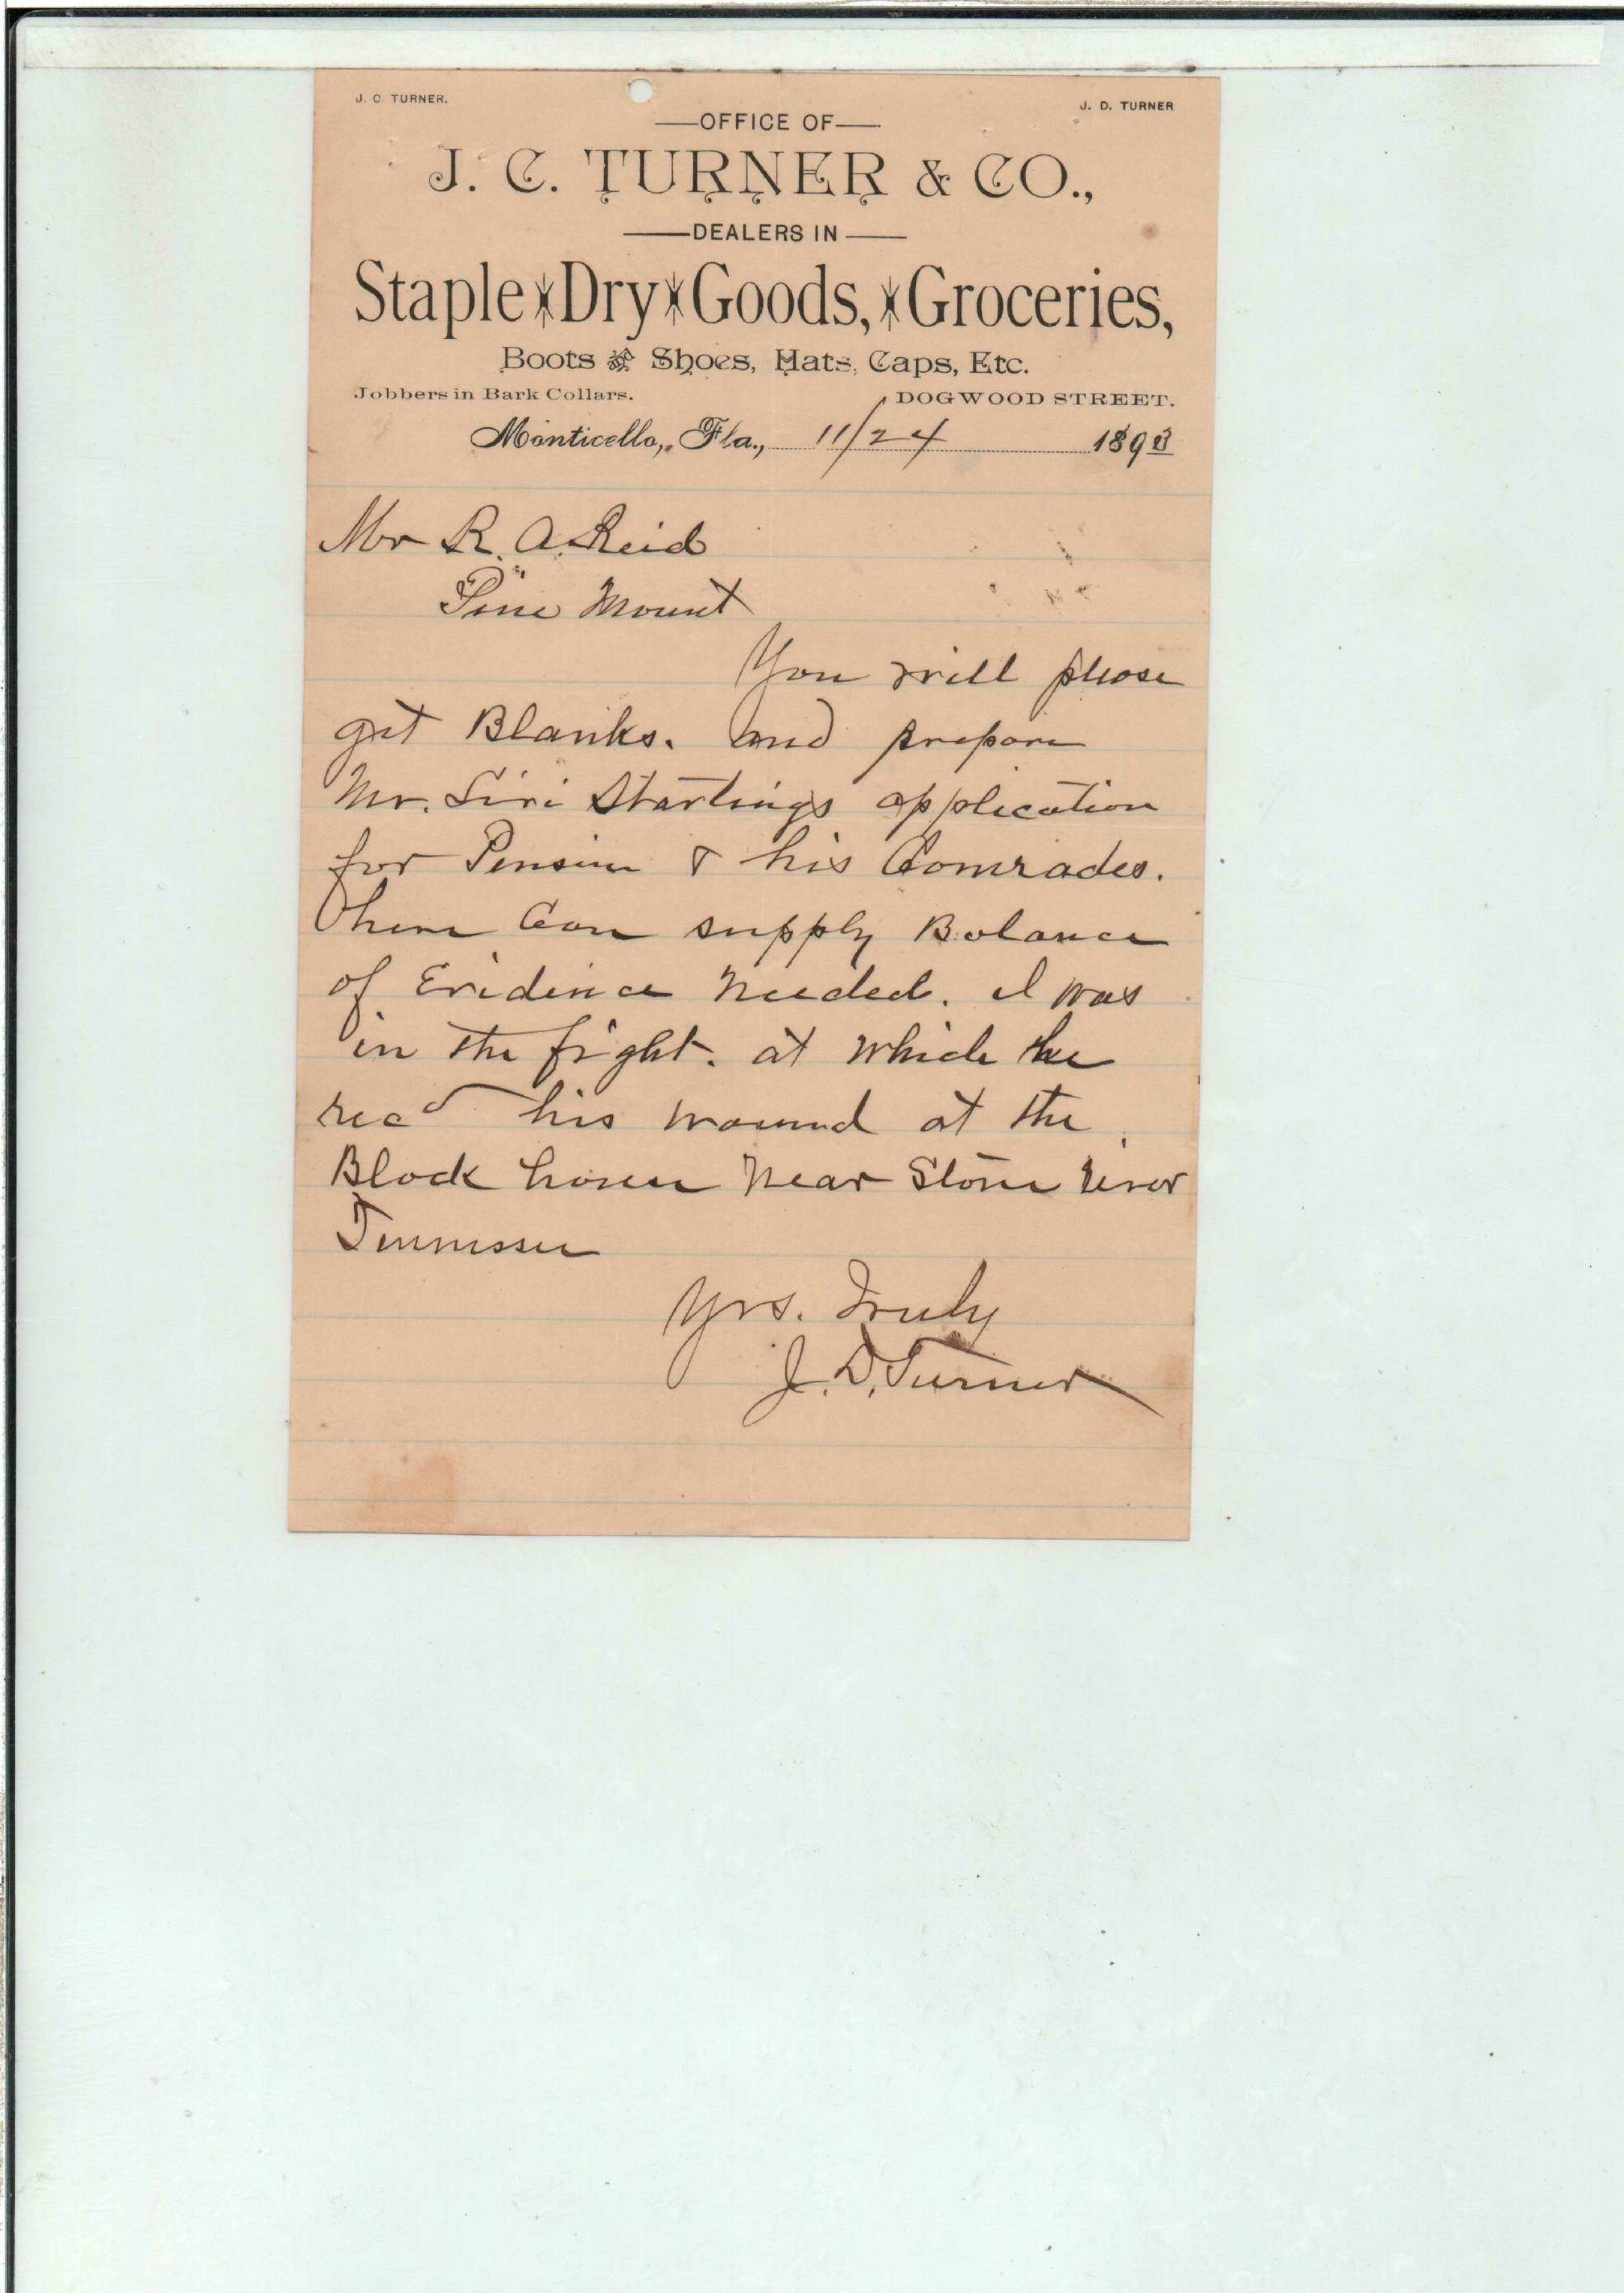 J. C. TURNER.
J. D. TURNER
OFFICE OF
J. C. TURNER & CO.,
DEALERS IN
Staple Dry Goods, Groceries,
Boots & Shoes, Hats, Caps, Etc.
Jobbers in Bark Collars.
DOGWOOD STREET.
Monticello, Fla., 11/24 1893
Mr R. A. Reid
Pine Mount
You will please
get Blanks. and prepare
Mr. Starlings application
for Pension & his Comrades.
here Can supply Balance
of Evidence Needed. I was
in the fight. at which he
recd his wound at the
Block house Near Stone River
Tennessee
Yrs. Truly
J. D. Turner